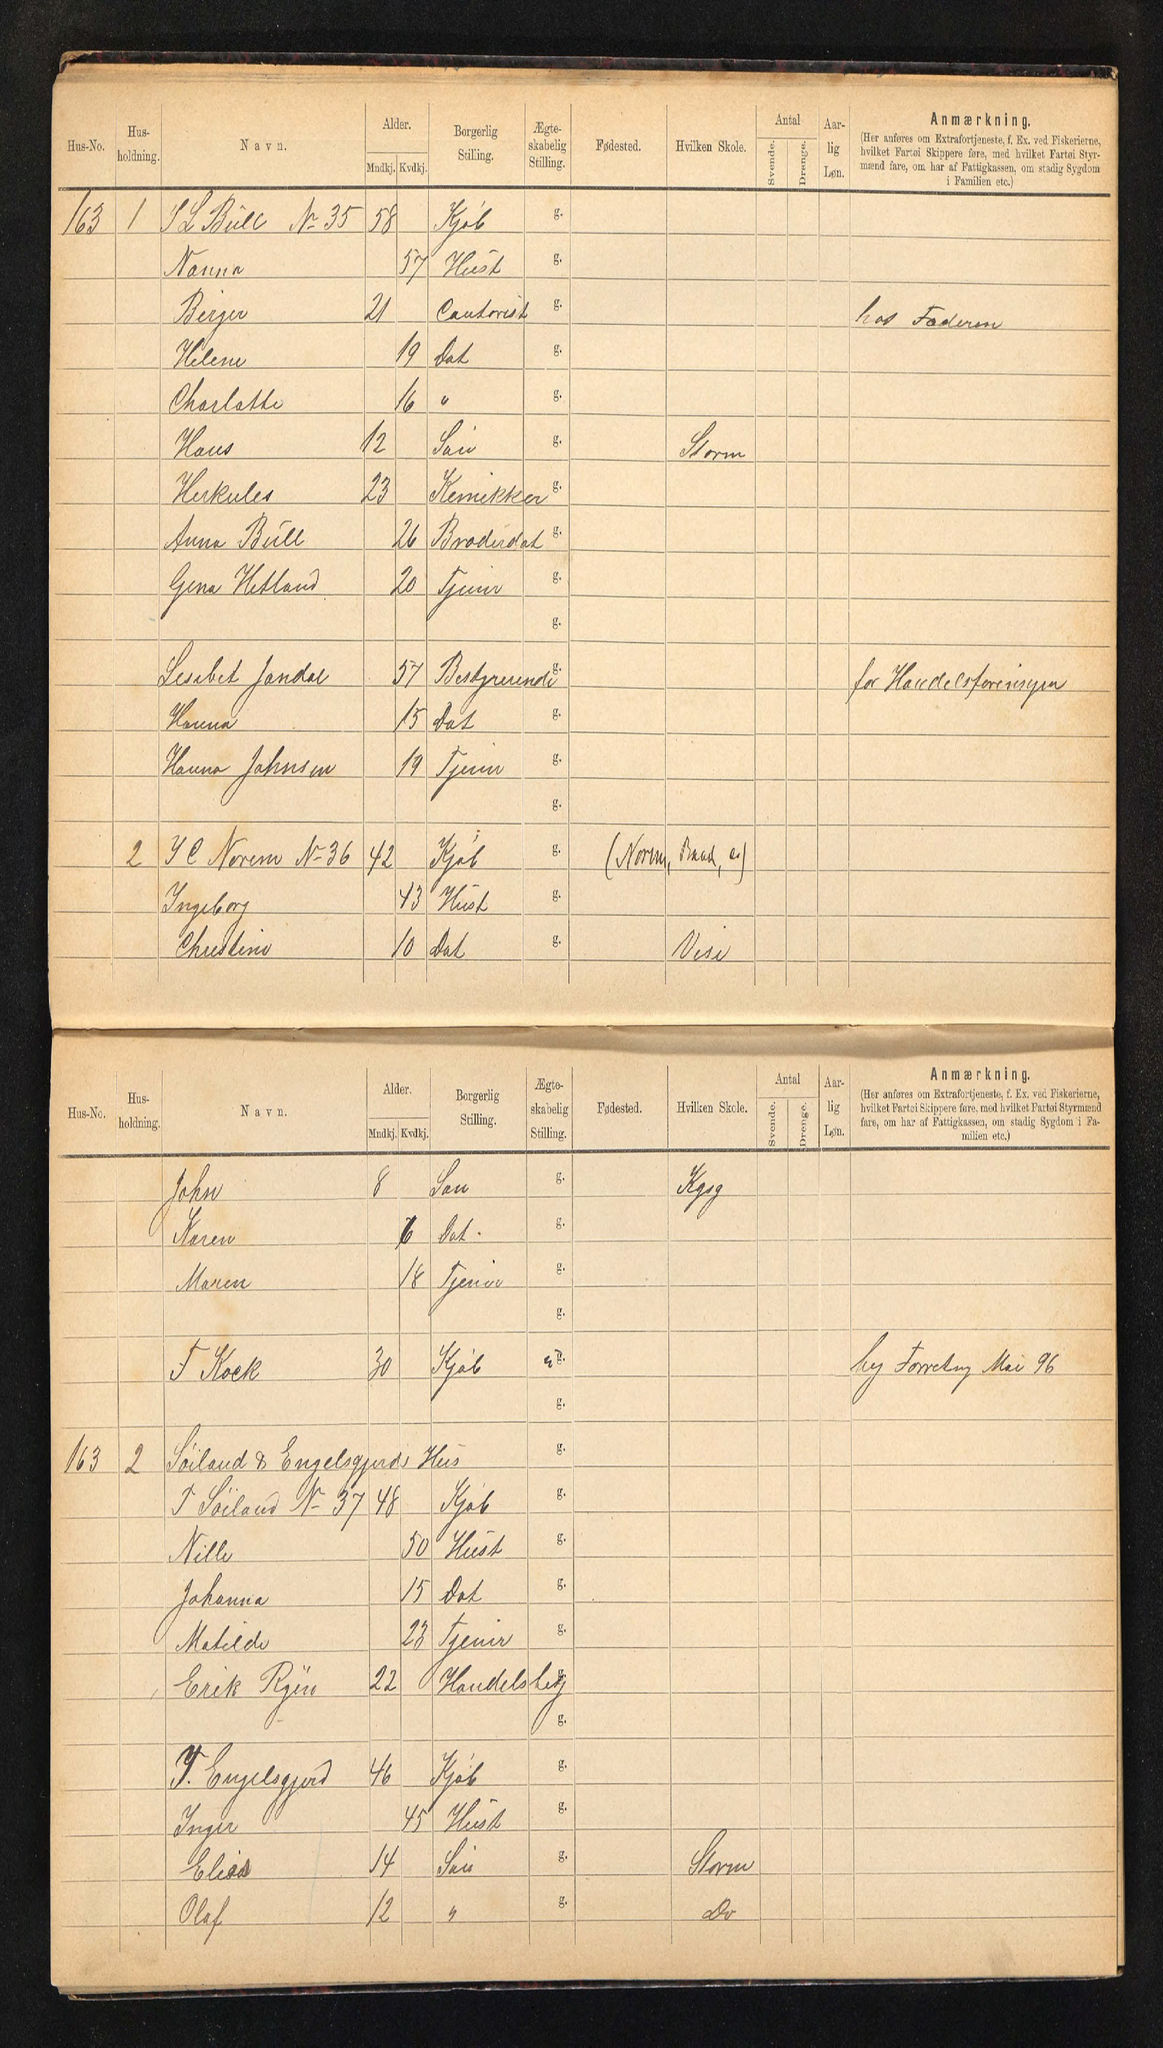 Hus-No. Hus-holdning. Navn. Alder. Mndkj. Kvdkj. Borgerlig Stilling. Ægte-skabelig Stilling. Fødested. Hvilken Skole. Antal Svende. Drenge. Aar-lig Løn. Anmærkning.
(Her anføres om Extrafortjeneste, f. Ex. ved Fiskerierne, hvilket Fartøi Skippere føre, med hvilket Fartøi Styr-mænd fare, om har af Fattigkassen, om stadig Sygdom i Familien etc.)
163 1 S L Büll No 35 58 Kjøb g.
Nanna 57 Hust g.
Birger 21 Contorist g. hos Faderen
Helene 19 Dat g.
Charlotte 16 " g.
Hans 12 Søn g. Storm
Herkules 23 Kemikker g.
Anna Büll 26 Broderdat g.
Gena Hetland 20 Tjener g.
g.
Lisabet Jandal 57 Bestyrerinde g. for Handelsforeningen
Hanna 15 Dat g.
Hanna Johnsen 19 Tjener g.
g.
2 S C Norem No 36 42 Kjøb g. (Norem, Baad, co)
Ingeborg 43 Hust g.
Christine 10 Dat g. Vise
Hus-No. Hus-holdning. Navn. Alder. Mndkj. Kvdkj. Borgerlig Stilling. Ægte-skabelig Stilling. Fødested. Hvilken Skole. Antal Svende. Drenge. Aar-lig Løn. Anmærkning.
(Her anføres om Extrafortjeneste, f. Ex. ved Fiskerierne, hvilket Fartøi Skippere føre, med hvilket Fartøi Styrmænd fare, om har af Fattigkassen, om stadig Sygdom i Fa-milien etc.)
John 8 Søn g. Kgsg
Karen 6 Dat. g.
Maren 18 Tjener g.
g.
F Kock 30 Kjøb g. beg Forretng Mai 96
g.
163 2 Søiland & Engelsgjerds Hus g.
T Søiland No 37 48 Kjøb g.
Nille 50 Hust g.
Johanna 15 Dat g.
Matilde 23 Tjener g.
Erik 22 Handelsbetj g.
g.
T. Engelsgjerd 46 Kjøb g.
Inger 45 Hust g.
Elias 14 Søn g. Storm
Olaf 12 " g. Do